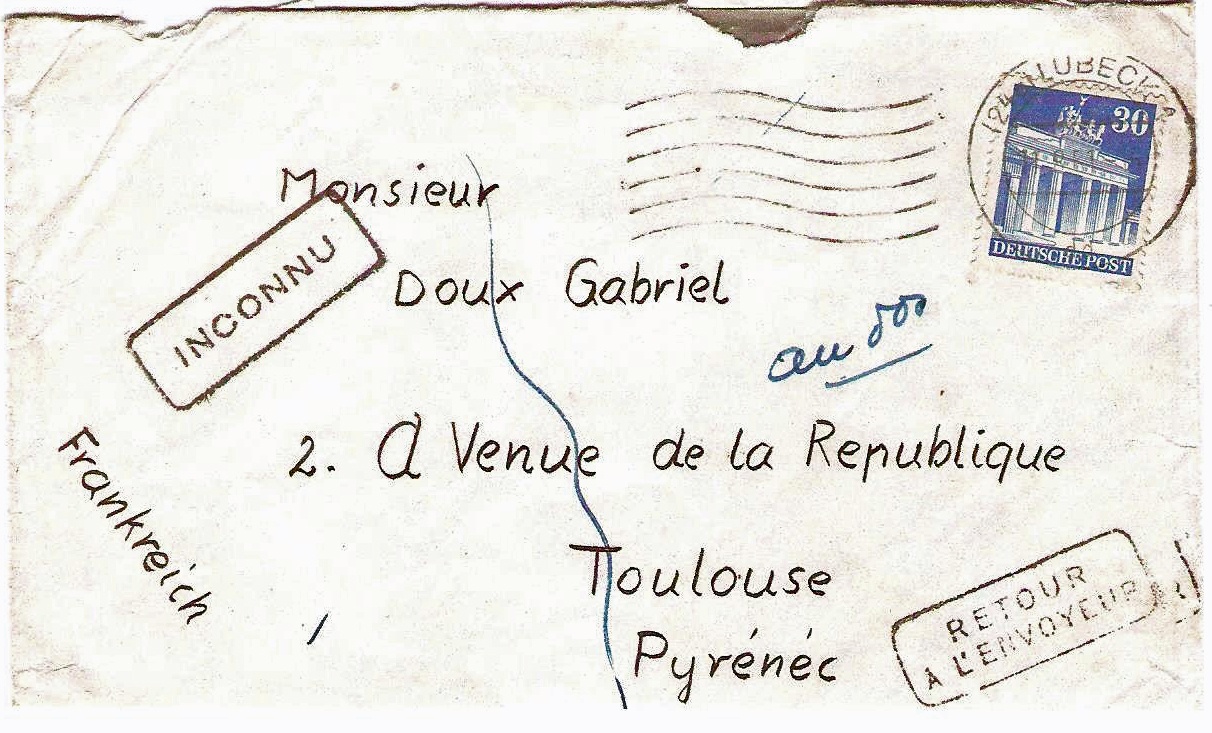 (24 LÜBECK
30
DEUTSCHE POST
Monsieur
INCONNU
Doux Gabriel
au
2. A Venue de la Republique
Frankreich
Toulouse
Pyrénéc
RETOUR
À L'ENVOYEUR